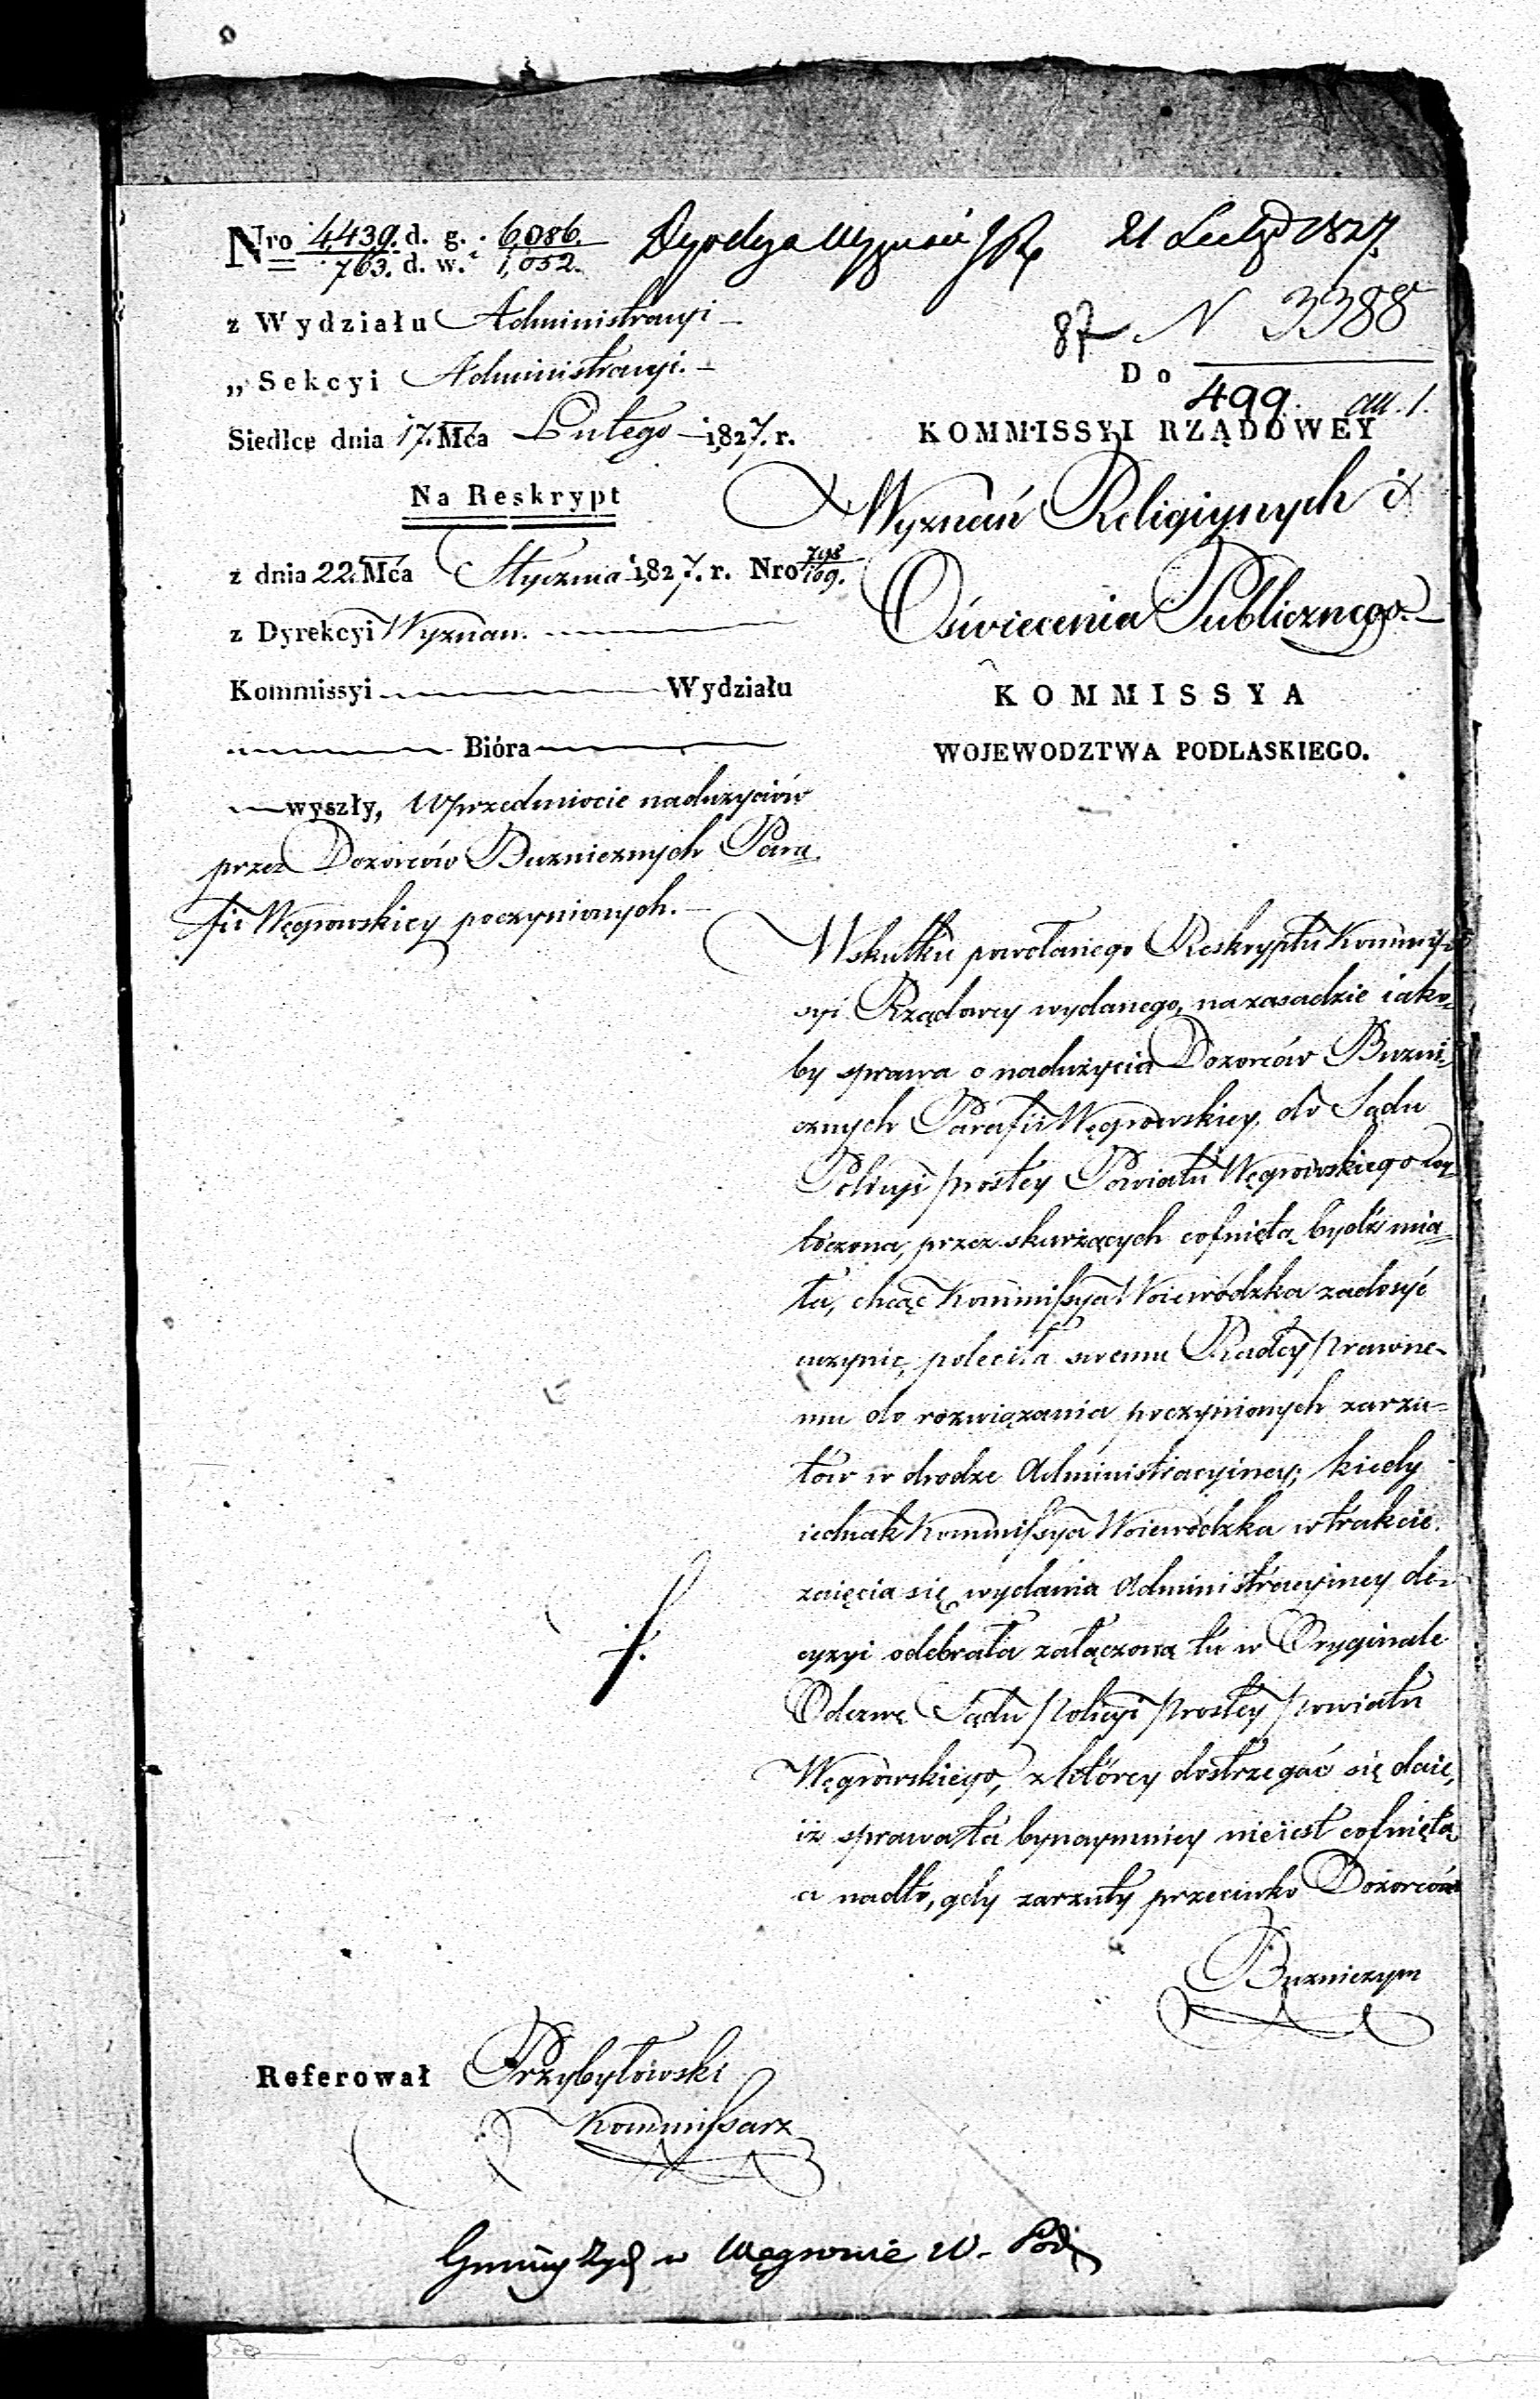 Nro 4439. d. g. 6086.
763. d. w. 1,052.
21 1827.
z Wydziału Administracyi
N 3388
87
„ Sekcyi Administracyi.
Do
499. all. 1.
Siedlce dnia 17. Mca Lutego 1827. r.
KOMMISSYI RZĄDOWEY
Na Reskrypt
Wyznań Religiynych i
z dnia 22. Mca Stycznia 1827. r. Nro 798/169.
Oświecenia Publicznego.
z Dyrekcyi Wyznan.
Kommissyi Wydziału
KOMMISSYA
Bióra
WOJEWODZTWA PODLASKIEGO.
wyszły, w przedmiocie nadużyciów
przez Dozorców Buznicznych Para
fii Węgrowskiey poczynionych.
W skutku powołanego Reskryptu Kommis
syi Rządowey wydanego, na zasadzie iako
by sprawa o nadużycia Dozorców Buzni
cznych Parafii Węgrowskiey, do Sądu
Policyi prostey Powiatu Węgrowskiego wy
toczona, przez skarżących cofniętą bydź mia
ła, chcąc Kommissya Woiewódzka zadosyć
uczynić, poleciła swemu Radcy prawne-
mu do rozwiązania poczynionych zarzu=
tów w drodze Administracyiney; kiedy
iednak Kommissya Woiewódzka w trakcie
zaięcia się wydania Administracyiney de-
cyzyi odebrała załączoną tu w Oryginale
Odezwę Sądu policyi prostey powiatu
Węgrowskiego, z którey dostrzegać się daie,
iż sprawa ta bynaymniey nie iest cofniętą
a nadto, gdy zarzuty przeciwko Dozorców
Buzniczym
Referował Przybyłowski
Kommissarz
Gminy Żyd w Węgrowie W. Pod